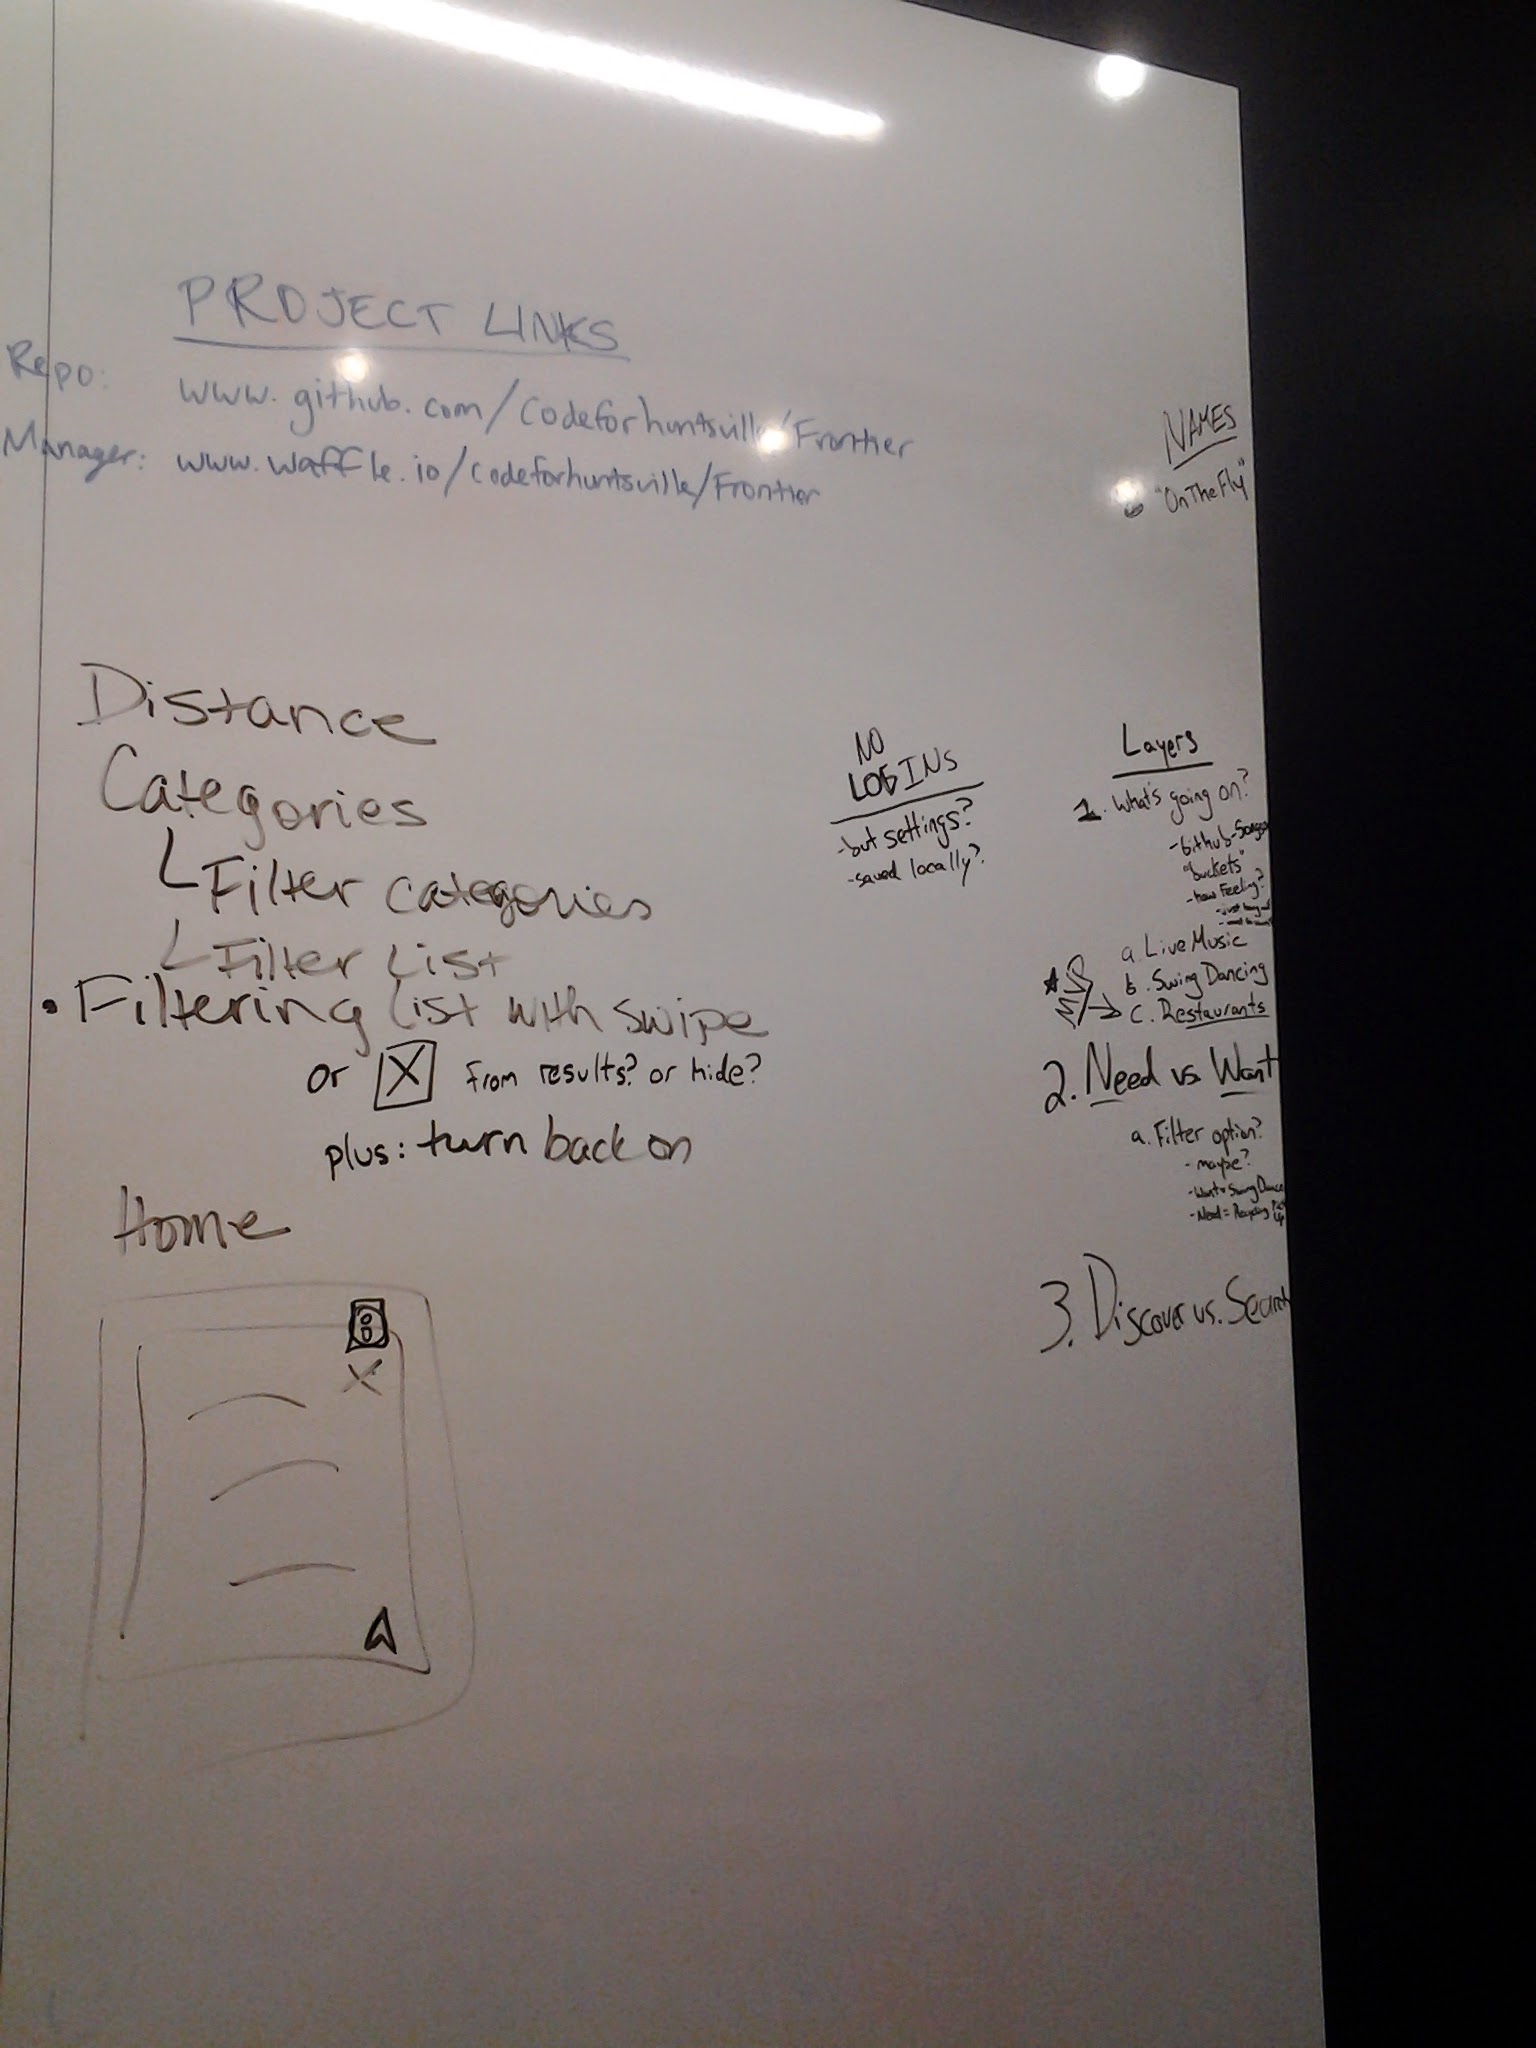 PROJECT LINKS
Repo: www.github.com/codeforhuntsville/Frontier
Manager: www.waffle.io/codeforhuntsville/Frontier
NAMES
"OnTheFly"
Distance
Categories
Filter categories
Filter List
• Filtering list with swipe
or X from results? or hide?
plus: turn back on
Home
X
NO
LOGINs
- but settings?
- saved locally?
Layers
1. What's going on?
"buckets"
- how Feeling?
a. Live Music
b. Swing Dancing
c. Restaurants
2. Need vs. Want
a. Filter option?
- maybe?
- Want = Swing Dance
- Need = Recycling Pick
Up
3. Discover vs. Search